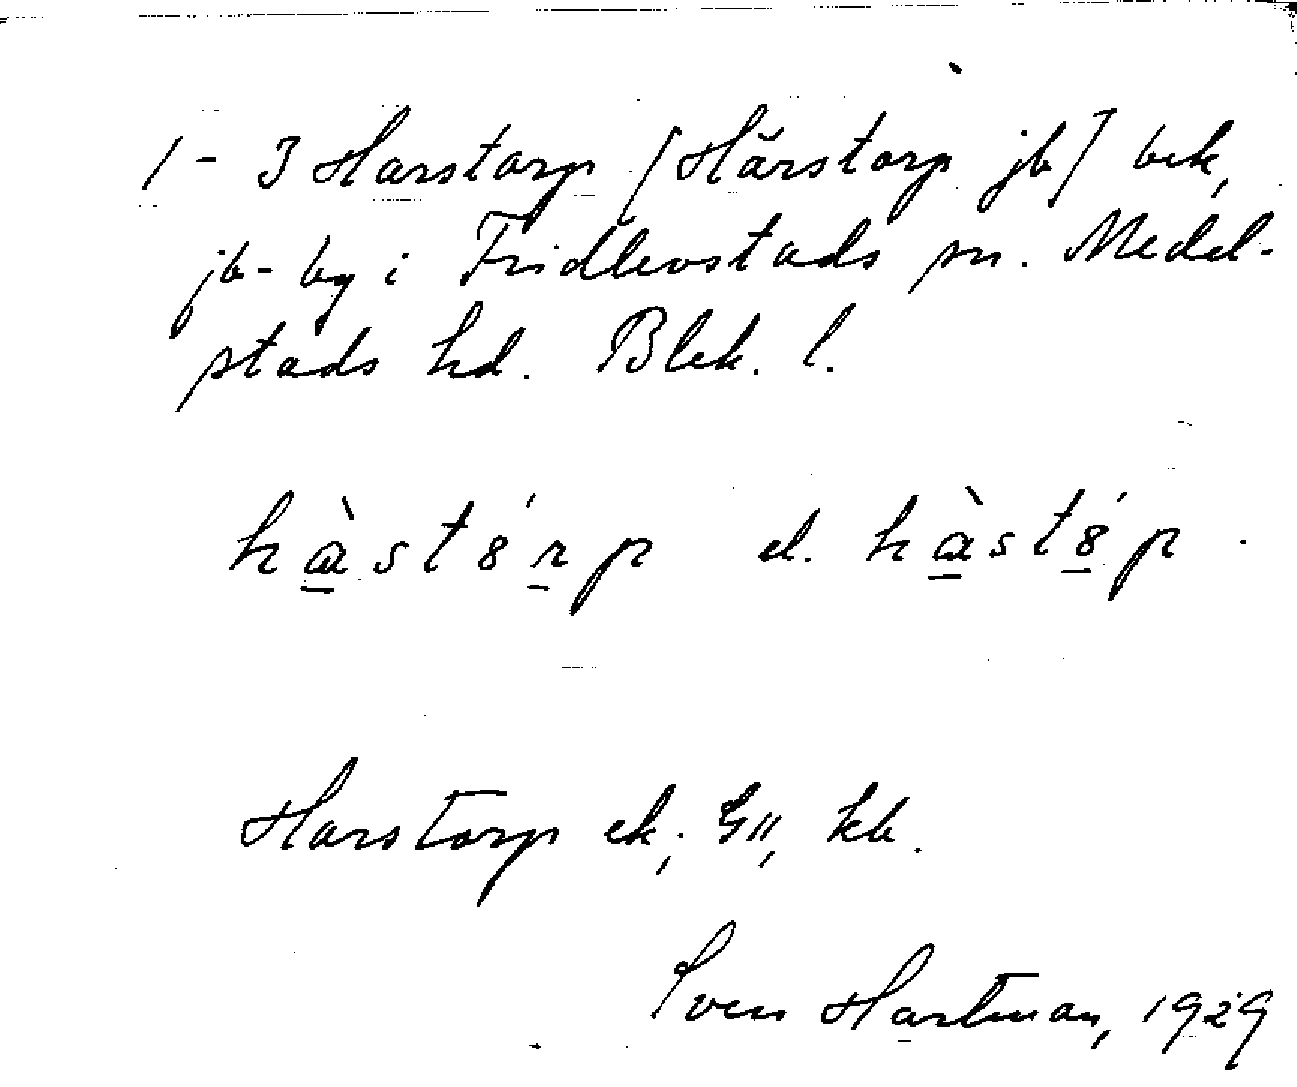 1-3 Harstorp [Hårstorp jb] bek,
jb-by i Fridlevstads sn. Medel-
stads hd. Blek. l.
hàstórp el. hàstóp.
Harstorp ek, GII, kb.
Sven Hartman, 1929